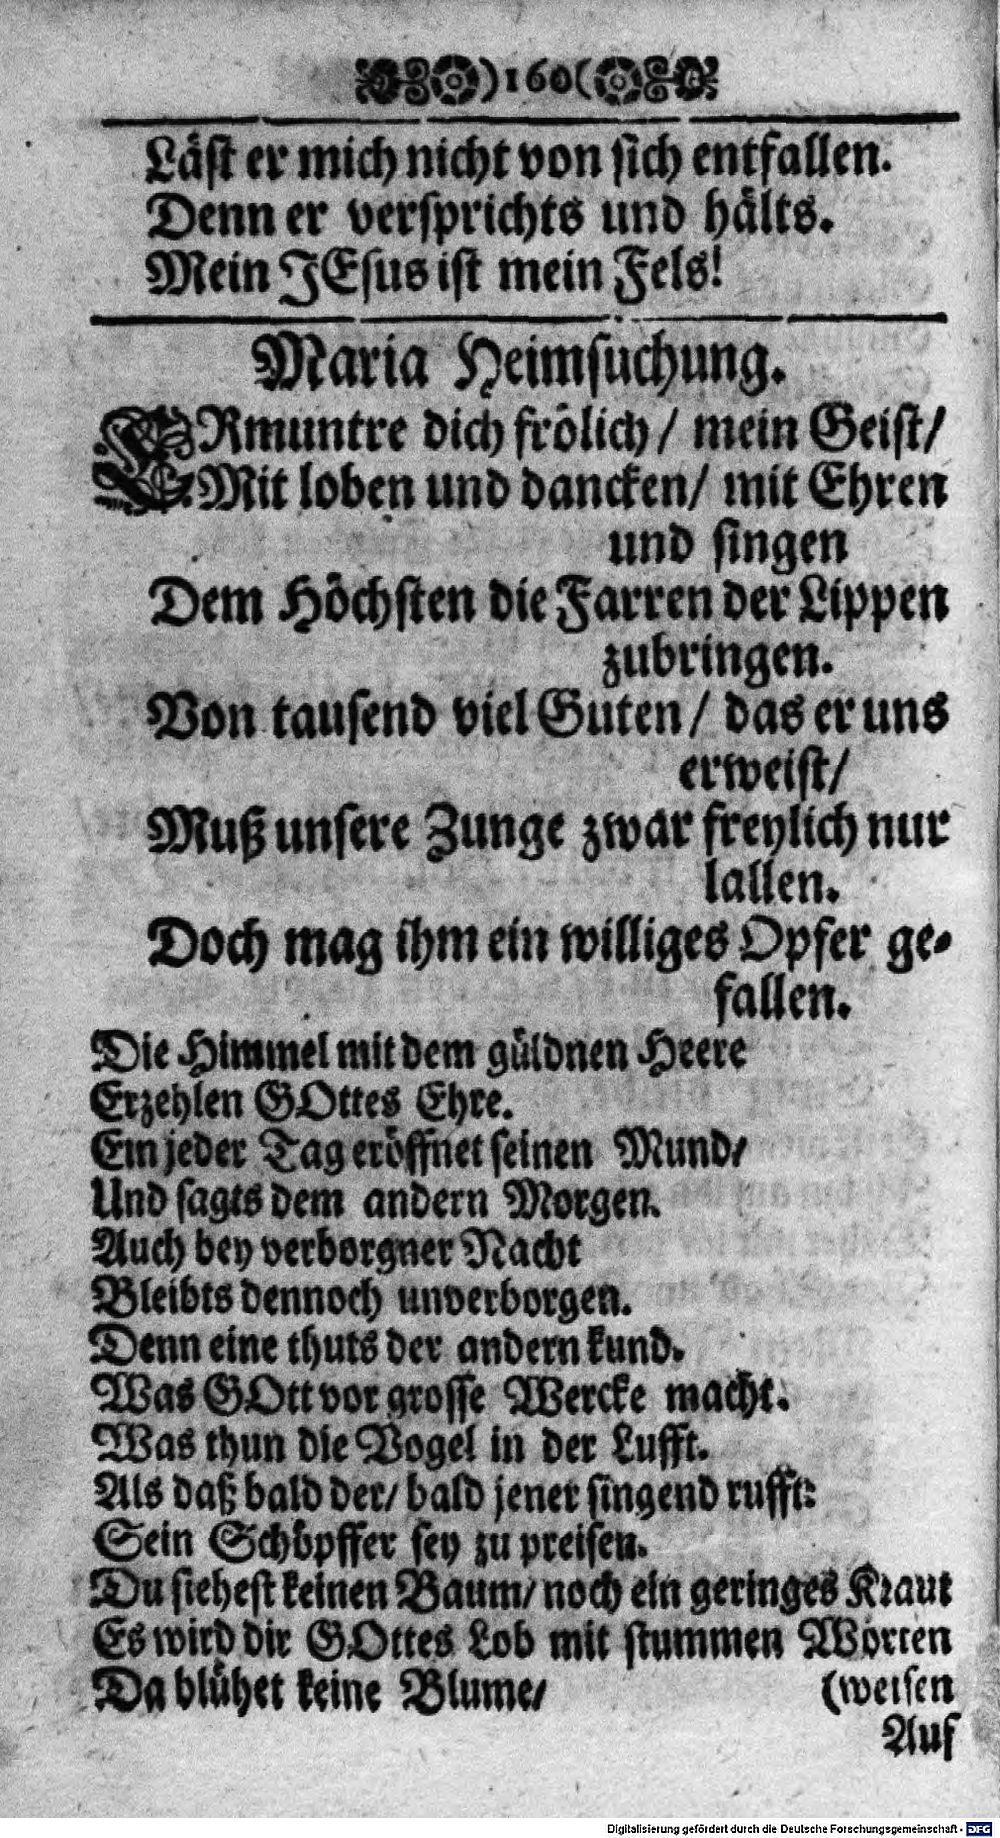 )160(
Läſt er mich nicht von ſich entfallen.
Denn er verſprichts und hålts.
Mein JEſus iſt mein Fels!
Maria Heimſuchung.
ERmuntre dich frôlich / mein Geiſt/
Mit loben und dancken/ mit Ehren
und ſingen
Dem Hôchſten die Farren der Lippen
zubringen.
Von tauſend viel Guten / das er uns
erweiſt/
Muß unſere Zunge zwar freylich nur
lallen.
Doch mag ihm ein williges Opfer ge-
fallen.
Die Himmel mit dem gůldnen Heere
Erzehlen GOttes Ehre.
Ein jeder Tag eröffnet ſeinen Mund/
Und ſagts dem andern Morgen.
Auch bey verborgner Nacht
Bleibts dennoch unverborgen.
Denn eine thuts der andern kund.
Was GOtt vor groſſe Wercke macht.
Was thun die Vogel in der Lufft.
Als daß bald der/ bald jener ſingend rufft:
Sein Schôpffer ſey zu preiſen.
Du ſieheſt keinen Baum/ noch ein geringes Kraut
Es wird dir GOttes Lob mit ſtummen Worten
Da blůhet keine Blume/ (weiſen
Auf
Digitalisierung gefördert durch die Deutsche Forschungsgemeinschaft - DFG